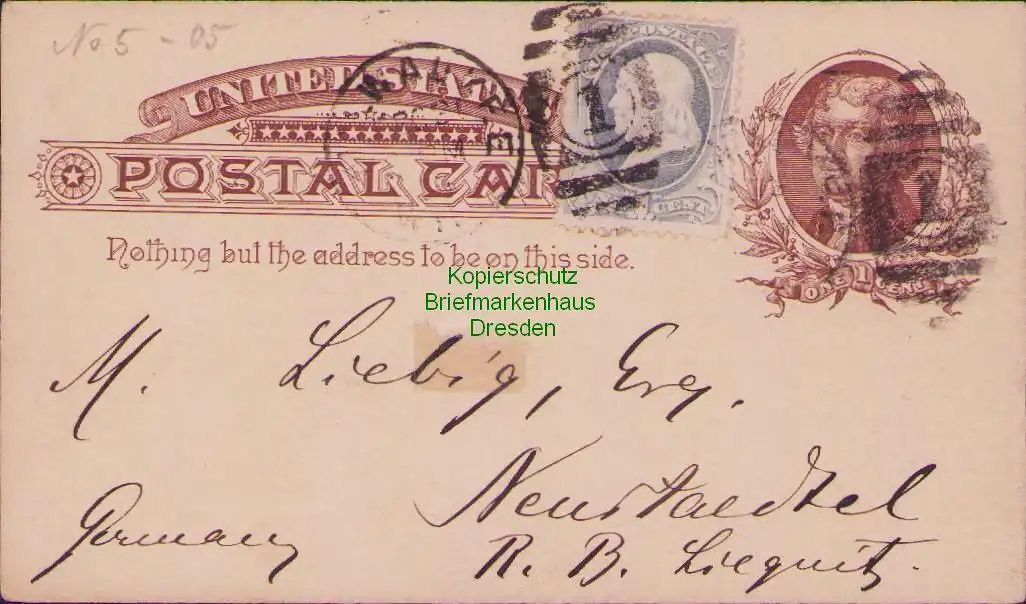 No 5 - 05
UNITED STATES
POSTAL CAR
Nothing but the address to be on this side.
POSTAGE
1
ONE 1 CENT
Kopierschutz
Briefmarkenhaus
Dresden
M. Liebig, Esq.
Neustaedtel
Germany
R. B. Liegnitz.